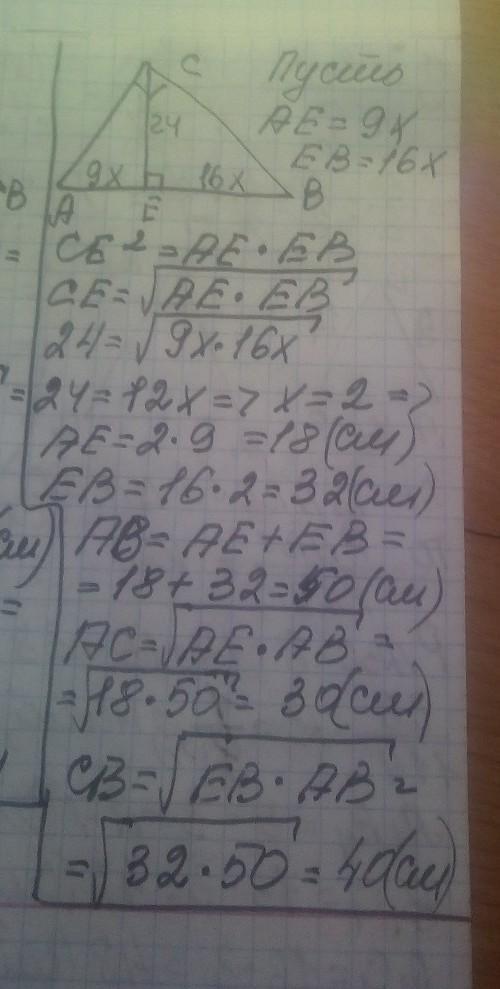 C
Пусть
24
AE = 9x
EB = 16x
9x
16x
B
A
E
B
=
CE² = AE · EB
CE = √AE · EB
24 = √9x · 16x
= 24 = 12x => x = 2 =>
AE = 2 · 9 = 18 (см)
EB = 16 · 2 = 32 (см)
см)
AB = AE + EB =
=
= 18 + 32 = 50 (см)
AC = √AE · AB =
= √18 · 50 = 30 (см)
CB = √EB · AB =
= √32 · 50 = 40 (см)